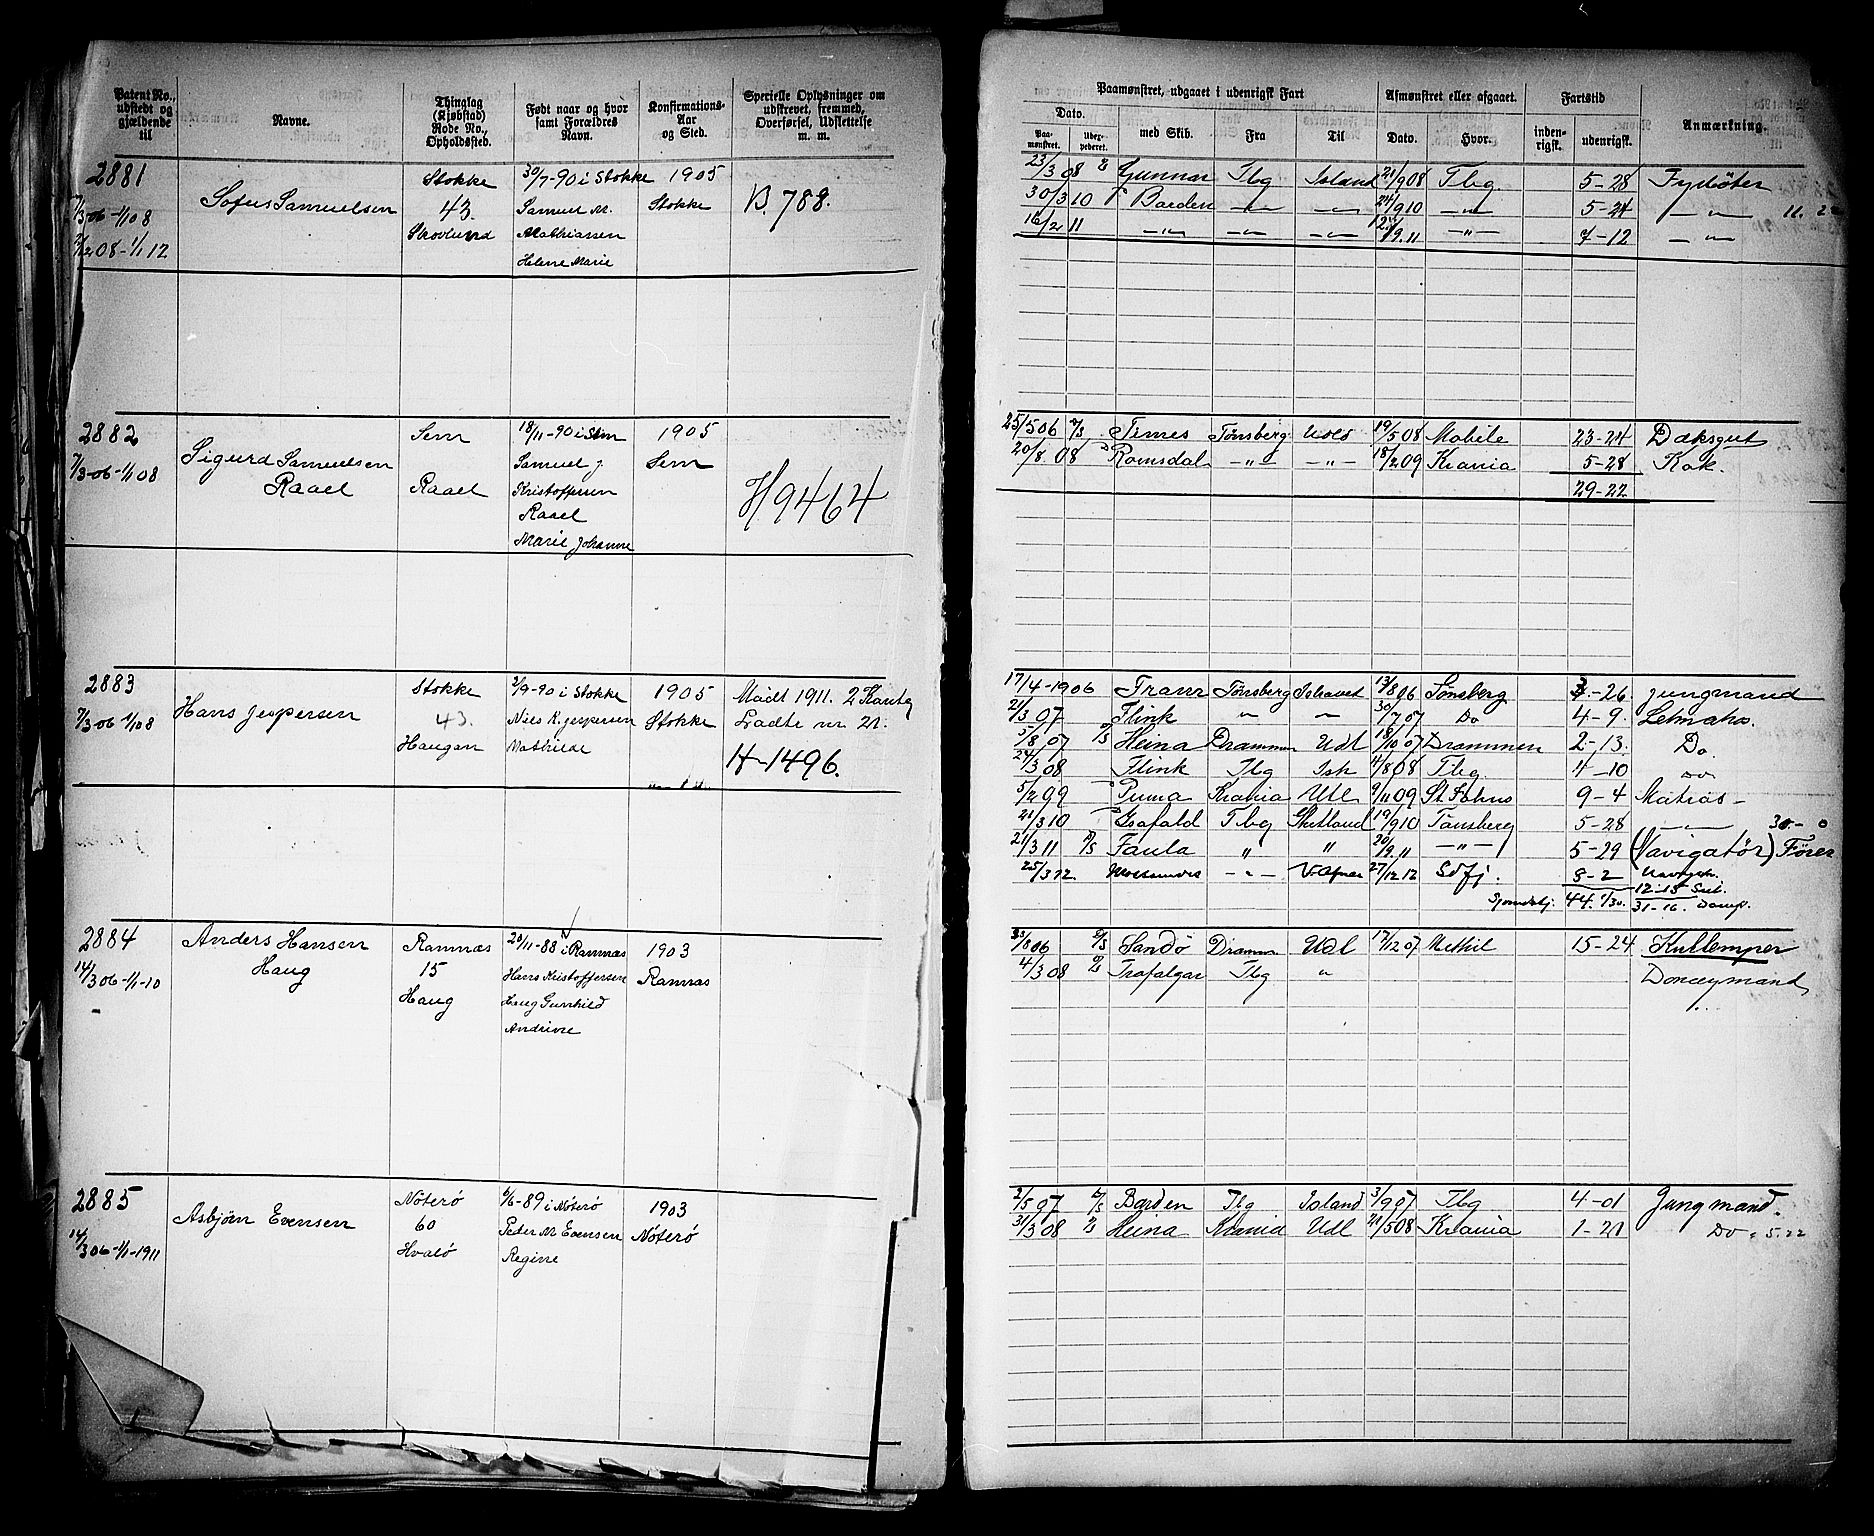 Patent No., udstedt og gjældende til
Navne.
Thinglag (Kjøbstad) Rode No., Opholdssted.
Født naar og hvor samt Forældres Navn.
Konfirmations- Aar og Sted.
Specielle Oplysninger om udskrevet, fremmed, Overførsel, Udslettelse m. m.
2881
Sofus Samuelsen
Stokke
43.
Skovlund
30/7-90 i Stokke
Samuel M.
Mathiassen
Helene Marie
1905
Stokke
B. 788.
7/3 06-1/1 08
08-1/1 12
2882
7/3-06-1/1 08
Sigurd Samuelsen
Raael
Sem
Raael
18/11-90 i Sem
Samuel J.
Kristoffersen
Raael
Marie Johanne
1905
Sem
H 9464
2883
7/3 06-1/1 08
Hans Jespersen
Stokke
43.
Haugan
3/9-90 i Stokke
Niels K. Jespersen
Mathilde
1905
Stokke
Mødt 1911. 2 Kantg
Lodte nr 21.
H-1496.
2884
14/3 06-1/1-10
Anders Hansen
Haug
Ramnæs
15
Haug
20/11-88 i Ramnæs
Hans Kristoffersen
Haug Gunhild
Andrine
1903
Ramnæs
2885
14/3 06-1/1-1911
Asbjørn Evensen
Nøterø
60
Hvalø
6/6-89 i Nøterø
Peder M. Evensen
Regine
1903
Nøterø
Paamønstret, udgaaet i udenrigsk Fart
Afmønstret eller afgaaet.
Fartstid
Anmærkning.
Dato.
Paa- mønstret.
Uder- pederet.
med Skib.
Fra
Til
Dato.
Hvor.
inden- rigsk.
udenrigsk.
23/3 08 Gunnar Tbg Island 21/9 08 Tbg. 5-28 Fyrbøter
30/3 10 Barden -"- -"- 24/9 10 -"- 5-24 -"-
16/2 11 -"- -"- -"- 9.11 -"- 7-12 -"-
25/5 06 Tønsberg Udld 19/5 08 Mobile 23-24 Dæksgut
20/8. 08 Romsdal -"- -"- 18/2 09 Krania 5-28 Kok.
29-22
17/4-1906 Fram Tønsberg Ishavet 13/8 06 Tønsberg 3-26. Jungmand
21/3 07 Flink " " 30/7 07 Do 4-9. Letmatr.
5/8 07 Heina Drammen Udl 18/10 07 Drammen 2-13. Do
24/3 08 Flink Tbg Ish 4/8 08 Tbg. 4-10 Do.
5/2 09 Puma Krania Utl 9/11 09 St Johns 9-4 Matros-
21/3 10 Isafold Tbg Shetland 19/9 10 Tønsberg 5-28 -"-
21/3 11 Faula " " 20/9.11 -"- 5-29 (Navigatør) Fører
25/3 12. -"- 27/12 12 8-2
44. 1/30. 31-16. Damp.
06 Sandö Dramm Udl 17/12 07 Methil 15-24 Kullemper
4/3 08 Trafalgar Tbg " Donceymand
2/5 07 Barden Tbg Island 3/9 07 Tbg 4-01 Jungmand.
31/3 08 Heina Krania Udl 21/5 08 Krania 1-20 Do 5.22